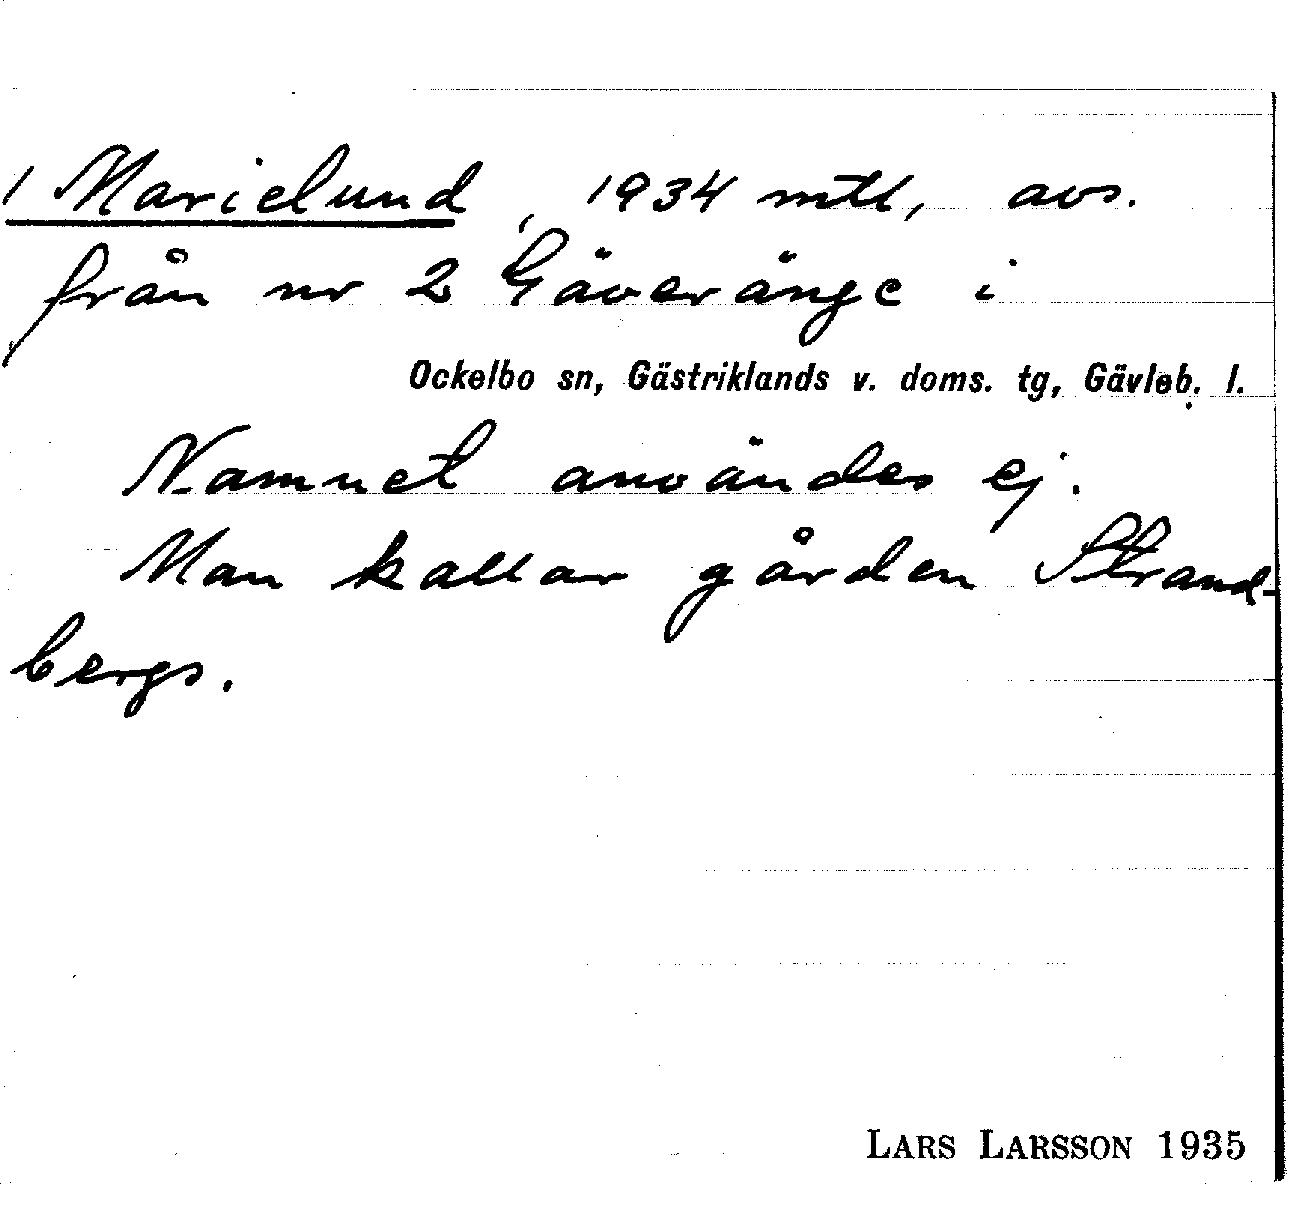 1 Marielund, 1934 mtl, avs.
från nr 2 Gäveränge i
Ockelbo sn, Gästriklands v. doms. tg, Gävleb. l.
Namnet användes ej.
Man kallar gården Strand-
bergs.
LARS LARSSON 1935